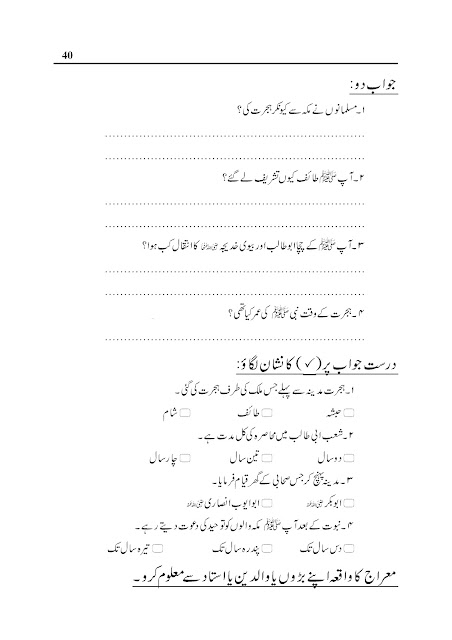 40
جواب دو:
۱۔ مسلمانوں نے مکہ سے کیونکر ہجرت کی؟
........................................
........................................
۲۔ آپ ﷺ طائف کیوں تشریف لے گئے؟
........................................
........................................
۳۔ آپ ﷺ کے چچا ابو طالب اور بیوی خدیجہ رضی اللہ عنہا کا انتقال کب ہوا؟
........................................
........................................
۴۔ ہجرت کے وقت نبی ﷺ کی عمر کیا تھی؟
........................................
درست جواب پر (✓) کا نشان لگاؤ:
۱۔ ہجرت مدینہ سے پہلے جس ملک کی طرف ہجرت کی گئی۔
▢ حبشہ ▢ طائف ▢ شام
۲۔ شعب ابی طالب میں محاصرہ کی کل مدت ہے۔
▢ دو سال ▢ تین سال ▢ چار سال
۳۔ مدینہ پہنچ کر جس صحابی کے گھر قیام فرمایا۔
▢ ابوبکر رضی اللہ عنہ ▢ ابو ایوب انصاری رضی اللہ عنہ
۴۔ نبوت کے بعد آپ ﷺ مکہ والوں کو توحید کی دعوت دیتے رہے۔
▢ دس سال تک ▢ پندرہ سال تک ▢ تیرہ سال تک
معراج کا واقعہ اپنے بڑوں یا والدین یا استاد سے معلوم کرو۔